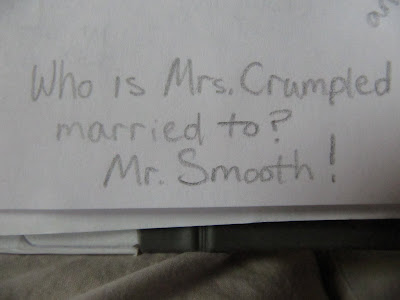 Who is Mrs. Crumpled
married to?
Mr. Smooth!